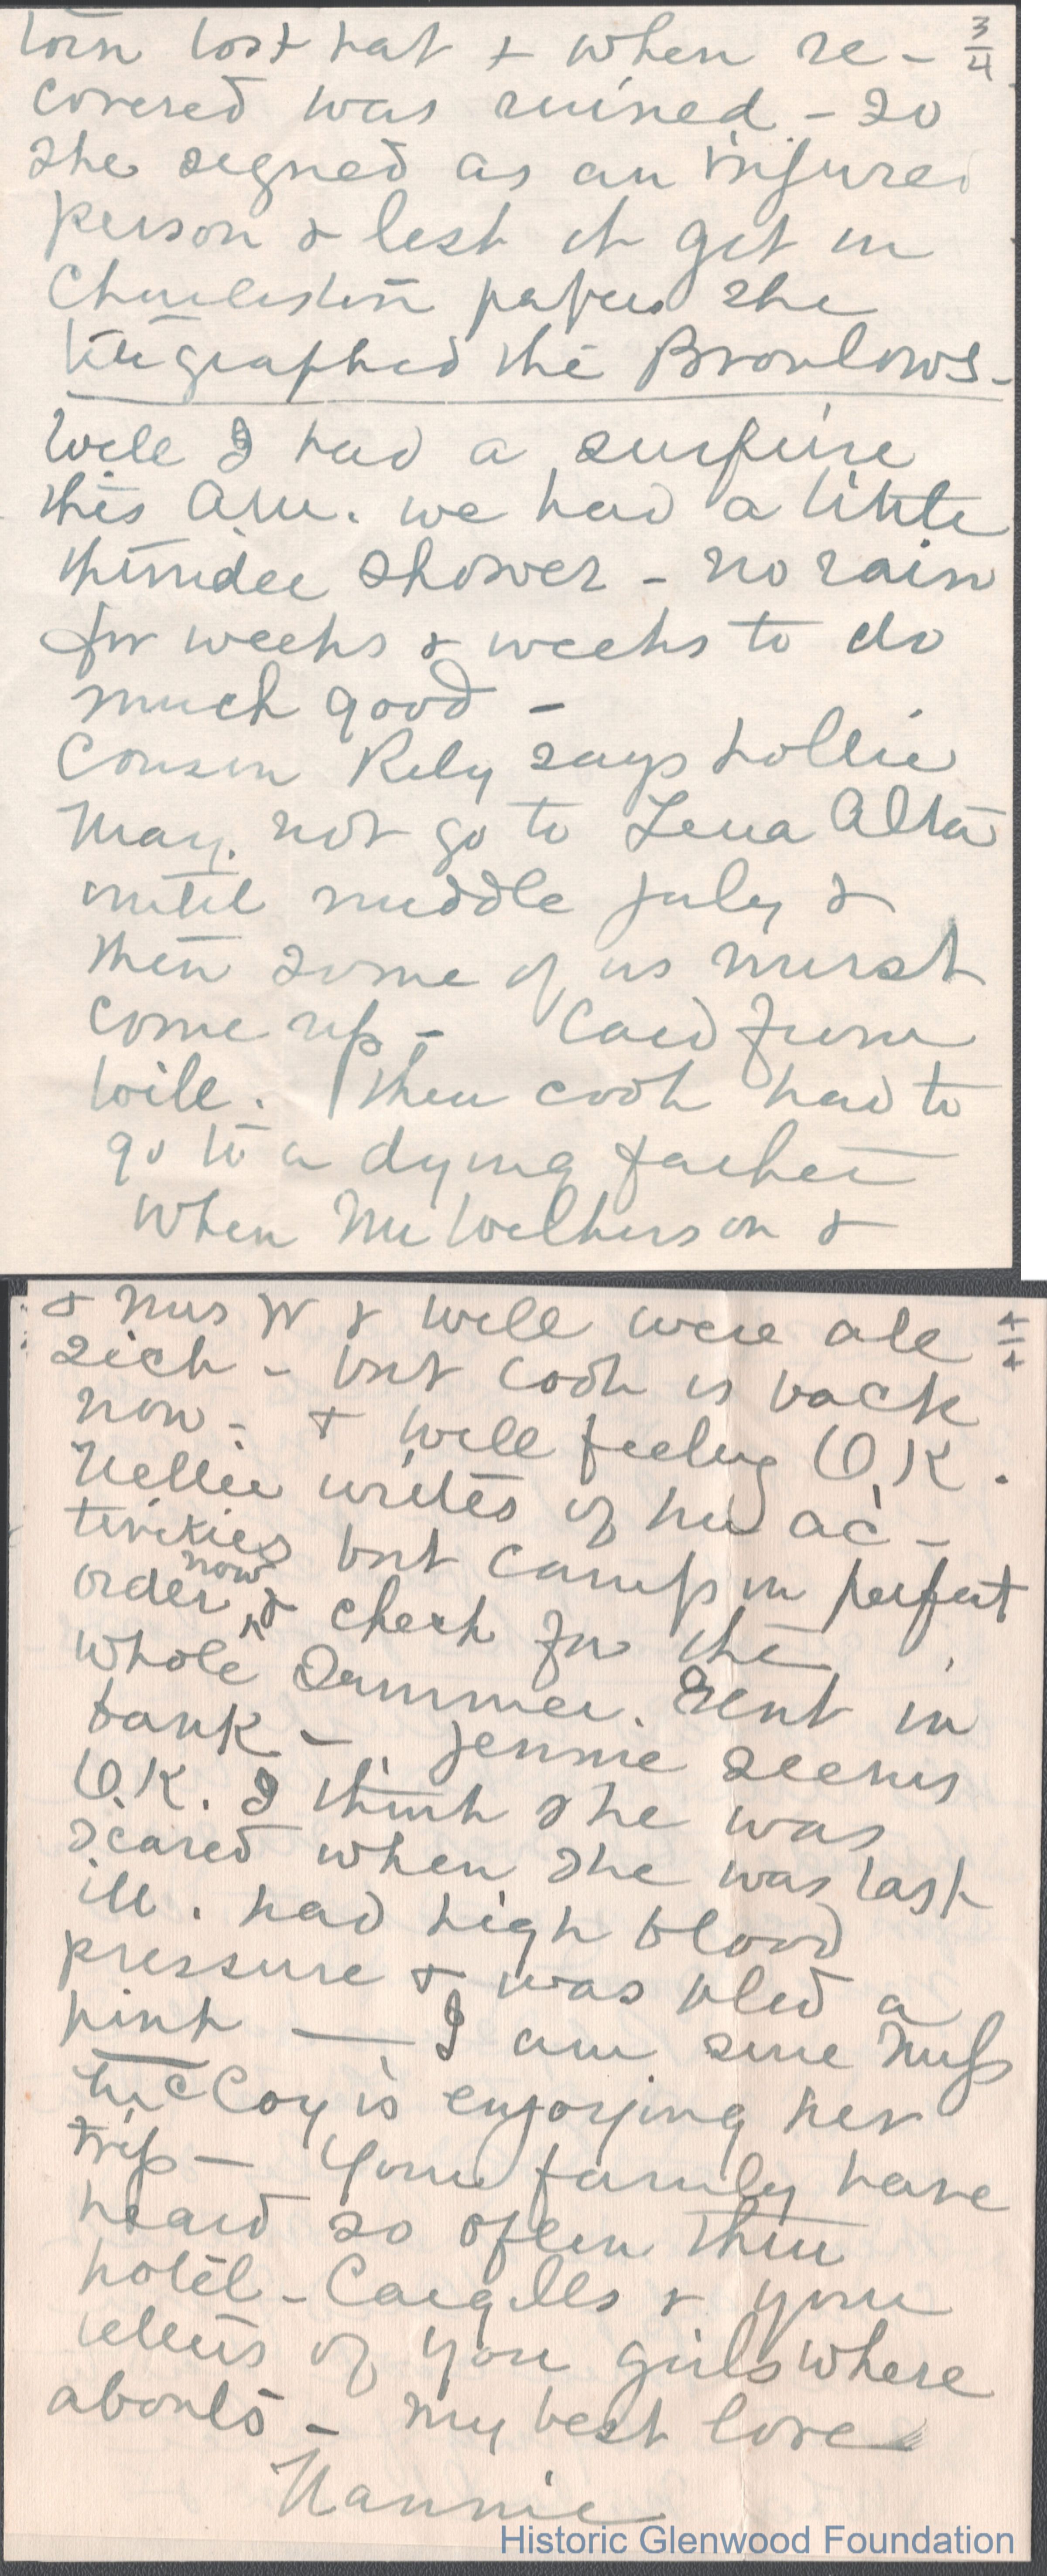 torn lost hat + when re- 3/4
covered was ruined - so
she signed as an injured
person & lest it get in
Charleston papers she
telegraphed the Bronlows-
Well I had a surprise
this a.m. we had a little
thunder shower - no rain
for weeks & weeks to do
much good -
Cousin Rely says Lollie
May. not go to Terra Alta
until middle July &
then some of us must
come up - Card from
Will. Their cook had to
go to a dying father
when Mr Wilkerson &
& Mrs W & Will were all 4/4
sick - but cook is back
now - + Will feeling O.K.
Nellie writes of her ac-
tivities but camp in perfect
now
order, & check for the
whole Summer. rent in
bank - Jennie seems
O.K. I think she was
scared when she was last
ill. had high blood
pressure & was bled a
pint — I am sure Miss
McCoy is enjoying her
trip - Your family have
heard so often thru
hotel - Cargills & your
letters of you girls where
abouts - My best love
Nannie
Historic Glenwood Foundation